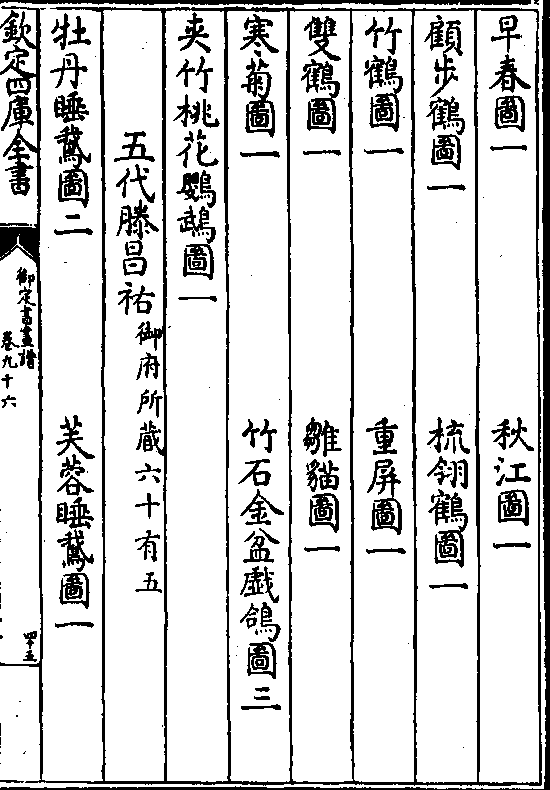 早春圖一　秋江圖一
顧步鶴圖一　梳翎鶴圖一
竹鶴圖一　重屏圖一
雙鶴圖一　雛貓圖一
寒菊圖一　竹石金盆戲鴿圖三
夾竹桃花鸚鵡圖一
五代滕昌祐御府所藏六十有五
牡丹睡鵝圖二　芙蓉睡鵝圖一
欽定四庫全書
御定書畫譜
卷九十六
四十五